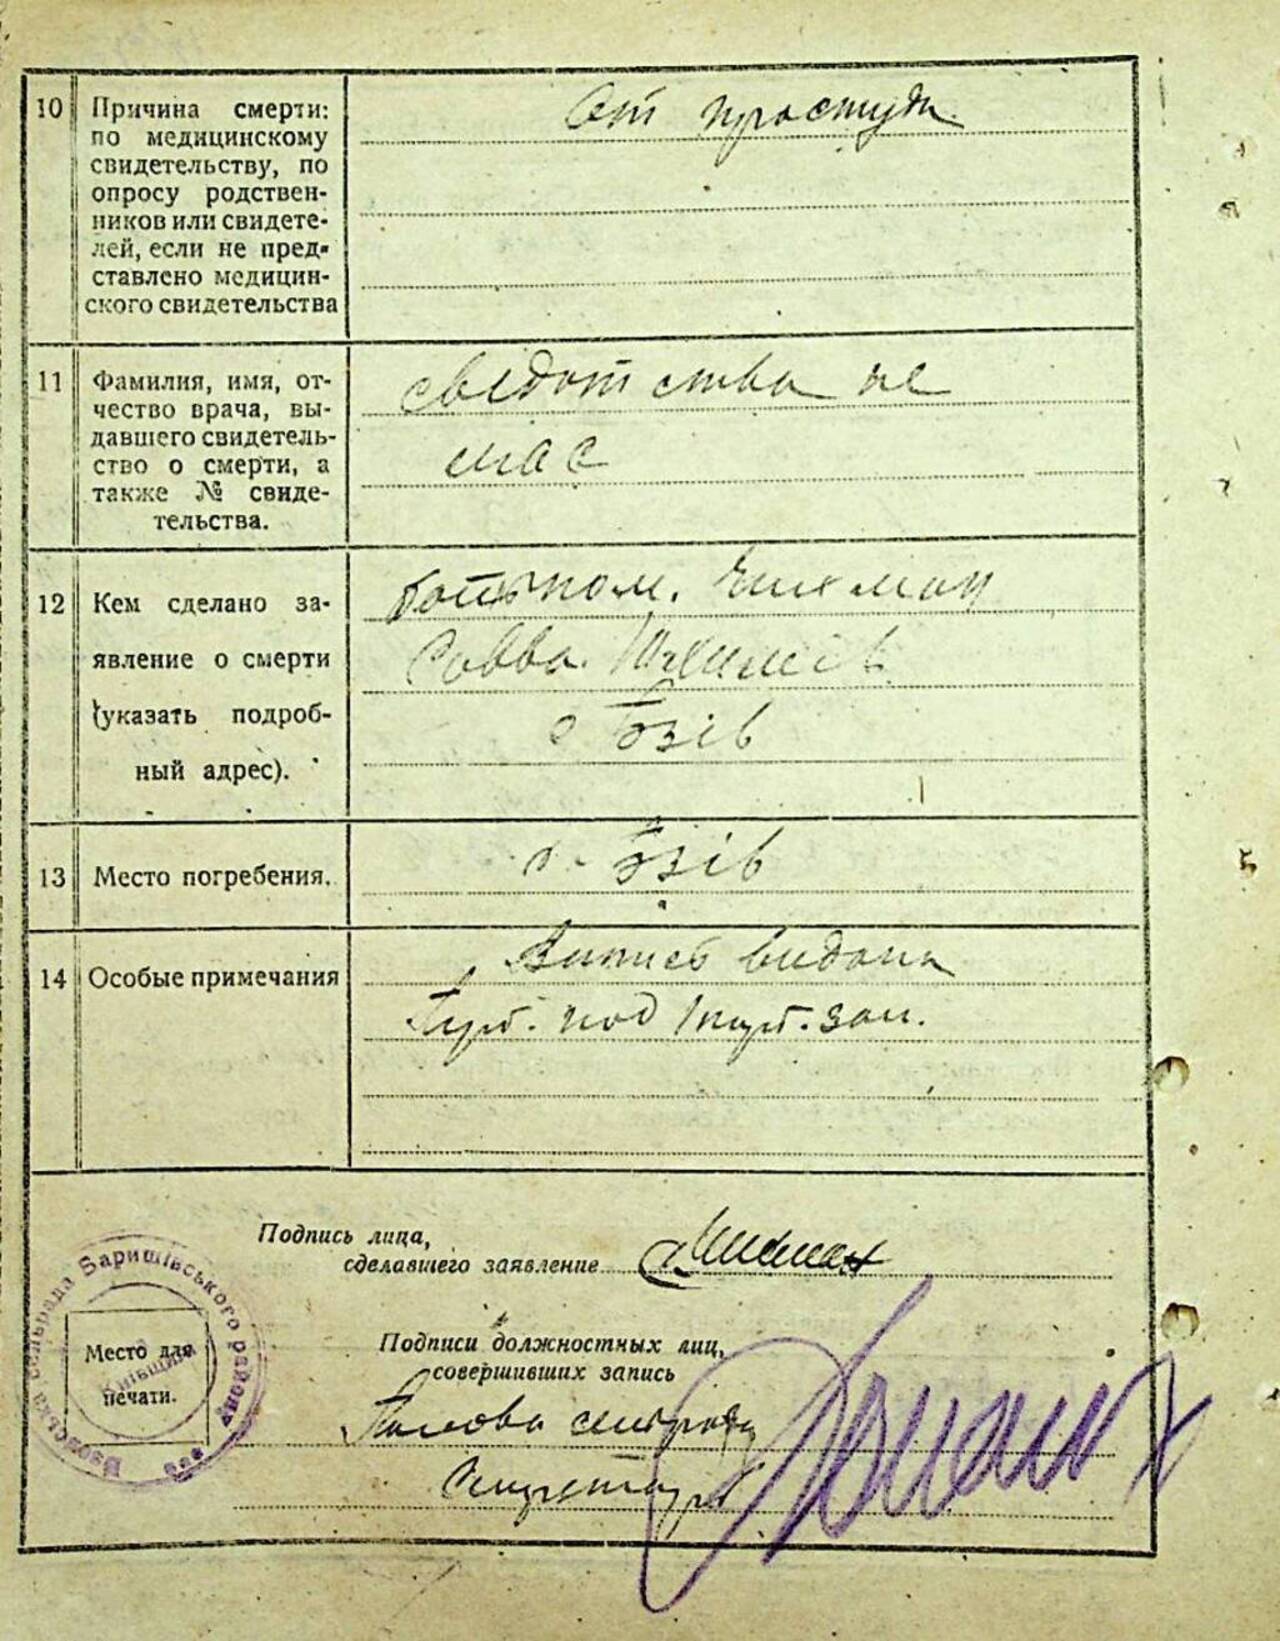 10 Причина смерти:
по медицинскому
свидетельству, по
опросу родствен-
ников или свидете-
лей, если не пред-
ставлено медицин-
ского свидетельства
От простуди
11 Фамилия, имя, от-
чество врача, вы-
давшего свидетель-
ство о смерти, а
также № свиде-
тельства.
свідотства не
має
12 Кем сделано за-
явление о смерти
(указать подроб-
ный адрес).
Савва
с Бзів
13 Место погребения.
с. Бзів
14 Особые примечания
Випись видана
под
Подпись лица,
сделавшего заявление
Подписи должностных лиц,
совершивших запись
Голова сільради
Секретарь
Место для
печати.
сільрада Баришівського району
Київщина